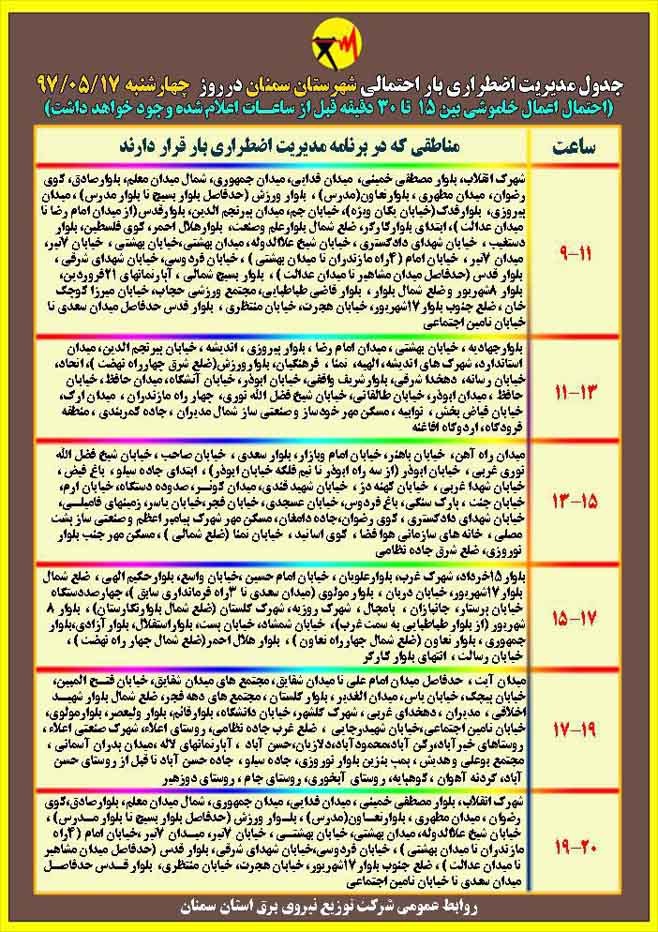 جدول مدیریت اضطراری بار احتمالی شهرستان سمنان در روز چهارشنبه ۹۷/۰۵/۱۷
(احتمال اعمال خاموشی بین ۱۵ تا ۳۰ دقیقه قبل از ساعات اعلام شده وجود خواهد داشت)
ساعت
مناطقی که در برنامه مدیریت اضطراری بار قرار دارند
۹-۱۱
شهرک انقلاب، بلوار مصطفی خمینی، میدان فدایی، میدان جمهوری، شمال میدان معلم، بلوارصادق، کوی
رضوان، میدان مطهری ، بلوارتعاون(مدرس) ، بلوار ورزش (حدفاصل بلوار بسیج تا بلوار مدرس) ، میدان
پیروزی، بلوارفدک(خیابان یگان ویژه)، خیابان جم، میدان پیرنجم الدین، بلوارقدس(از میدان امام رضا تا
میدان عدالت )، ابتدای بلوارکارگر، ضلع شمال بلوارعلم وصنعت، بلوارهلال احمر، کوی فلسطین، بلوار
دستغیب ، خیابان شهدای دادگستری ، خیابان شیخ علاالدوله، میدان بهشتی،خیابان بهشتی ، خیابان ۷تیر،
میدان ۷تیر ، خیابان امام (۴راه مازندران تا میدان بهشتی ) ، خیابان فردوسی، خیابان شهدای شرقی ،
بلوار قدس (حدفاصل میدان مشاهیر تا میدان عدالت ) ، بلوار بسیج شمالی ، آپارتمانهای ۲۱فروردین،
بلوار ۸شهریور و ضلع شمال بلوار ، بلوار قاضی طباطبایی، مجتمع ورزشی حجاب، خیابان میرزا کوچک
خان ، ضلع جنوب بلوار۱۷شهریور، خیابان هجرت، خیابان منتظری ، بلوار قدس حدفاصل میدان سعدی تا
خیابان تامین اجتماعی
۱۱-۱۳
بلوارجهادیه ، خیابان بهشتی ، میدان امام رضا ، بلوار پیروزی ، اندیشه ، خیابان پیرنجم الدین، میدان
استاندارد، شهرک های اندیشه، الهیه، نمتا ، فرهنگیان، بلوارورزش(ضلع شرق چهارراه نهضت )، اتحاد،
خیابان رسانه ، دهخدا شرقی، بلوارشریف واقفی، خیابان ابوذر، خیابان آتشگاه، میدان حافظ، خیابان
حافظ ، میدان ابوذر، خیابان طالقانی، خیابان شیخ فضل الله نوری، چهار راه مازندران ، میدان ارگ،
خیابان فیاض بخش ، نوابیه ، مسکن مهر خودساز و صنعتی ساز شمال مدیران ، جاده کمربندی ، منطقه
فرودگاه، اردوگاه افاغنه
۱۳-۱۵
میدان راه آهن، خیابان باهنر، خیابان امام وبازار، بلوار سعدی ، خیابان صاحب ، خیابان شیخ فضل الله
نوری غربی ، خیابان ابوذر (از سه راه ابوذر تا نیم فلکه خیابان ابوذر) ، ابتدای جاده سیلو ، باغ فیض ،
خیابان شهدا غربی ، خیابان کهنه دژ ، خیابان شهید قندی، میدان کوثر، صدوده دستگاه، خیابان ارم،
خیابان جنت ، پارک سنگی، باغ فردوس، خیابان عسجدی، خیابان فجر، خیابان یاسر، زمینهای فامیلی،
خیابان شهدای دادگستری ، کوی رضوان،جاده دامغان، مسکن مهر شهرک پیامبر اعظم و صنعتی ساز پشت
مصلی ، خانه های سازمانی هوا فضا ، کوی اساتید ، خیابان نمتا (ضلع شمالی ) ، مسکن مهر جنب بلوار
نوروزی، ضلع شرق جاده نظامی
۱۵-۱۷
بلوار ۱۵خرداد، شهرک غرب، بلوارعلویان ، خیابان امام حسین، خیابان واسع، بلوارحکیم الهی ، ضلع شمال
بلوار ۱۷شهریور، خیابان دربان ، بلوار مولوی (میدان سعدی تا ۳راه فرمانداری سابق )، چهارصددستگاه
خیابان پرستار، جانبازان ، پامچال ، شهرک روزیه، شهرک گلستان (ضلع شمال بلوارنگارستان)، بلوار ۸
شهریور (از بلوار طباطبایی به سمت غرب)، خیابان شمشاد، خیابان پست، بلواراستقلال، بلوار آزادی،بلوار
جمهوری ، بلوار تعاون (ضلع شمال چهارراه تعاون ) ، بلوار هلال احمر(ضلع شمال چهار راه نهضت )،
خیابان رسالت ، انتهای بلوار کارگر
۱۷-۱۹
میدان آیت ، حدفاصل میدان امام علی تا میدان شقایق، مجتمع های میدان شقایق، خیابان فتح المبین،
خیابان پیچک، خیابان یاس، میدان الغدیر ، بلوار گلستان ، مجتمع های دهه فجر، ضلع شمال بلوار شهید
اخلاقی ، مدیران ، دهخدای غربی ، شهرک گلشهر، خیابان دانشگاه، بلوارقائم، بلوار ولیعصر، بلوارمولوی،
خیابان تامین اجتماعی،خیابان شهیدرجایی ، ضلع غرب جاده نظامی، روستای اعلاء، شهرک صنعتی اعلاء ،
روستاهای خیرآباد، رکن آباد،محمودآباد،دلازیان،حسن آباد ، آپارتمانهای لاله ،میدان بدران آسمانی ،
مجتمع بوعلی وهدیش ، پمپ بنزین بلوار نوروزی، جاده سیلو ، جاده حسن آباد تا قبل از روستای حسن
آباد، گردنه آهوان ، کوهپایه، روستای آبخوری، روستای جام ، روستای دوزهیر
۱۹-۲۰
شهرک انقلاب، بلوار مصطفی خمینی ، میدان فدایی، میدان جمهوری، شمال میدان معلم، بلوارصادق،کوی
رضوان ، میدان مطهری ، بلوارتعاون(مدرس) ، بلوار ورزش (حدفاصل بلوار بسیج تا بلوار مدرس) ،
خیابان شیخ علاالدوله، میدان بهشتی، خیابان بهشتی ، خیابان ۷تیر، میدان ۷تیر ،خیابان امام (۴راه
مازندران تا میدان بهشتی ) ، خیابان فردوسی،خیابان شهدای شرقی، بلوار قدس (حدفاصل میدان مشاهیر
تا میدان عدالت ) ، ضلع جنوب بلوار۱۷شهریور، خیابان هجرت، خیابان منتظری ، بلوار قدس حدفاصل
میدان سعدی تا خیابان تامین اجتماعی
روابط عمومی شرکت توزیع نیروی برق استان سمنان